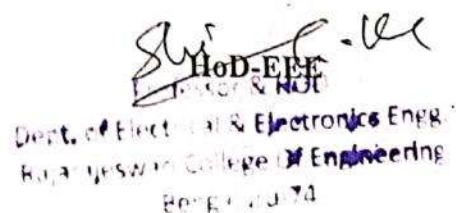 HoD-EEE
Professor & HOD
Dept. of Electrical & Electronics Engg.
Rajarajeswari College of Engineering
Bengaluru-74